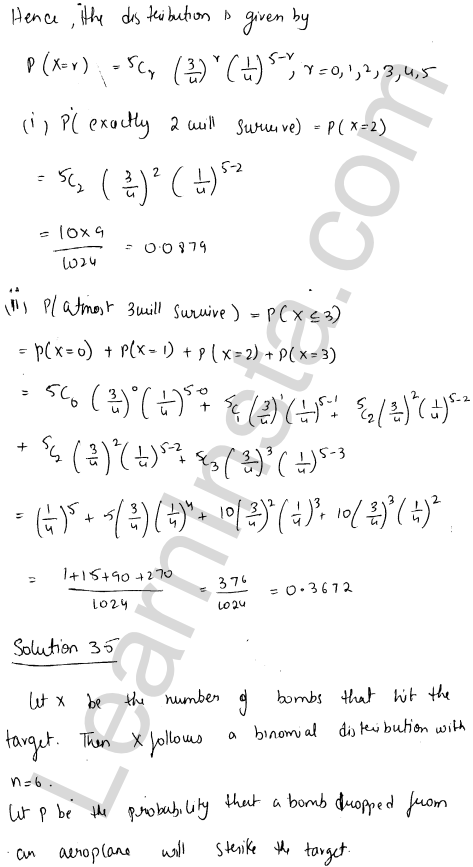 Hence, the distribution is given by
P(X=r) = ⁵Cᵣ (3/4)^r (1/4)^5-r, r=0,1,2,3,4,5
(i) P(exactly 2 will survive) = P(X=2)
= ⁵C₂ (3/4)^2 (1/4)^5-2
= 10×9/1024 = 0.0879
(ii) P(atmost 3 will survive) = P(X≤3)
= P(X=0) + P(X=1) + P(X=2) + P(X=3)
= ⁵C₀ (3/4)^0 (1/4)^5-0 + ⁵C₁ (3/4)^1 (1/4)^5-1 + ⁵C₂ (3/4)^2 (1/4)^5-2
+ ⁵C₂ (3/4)^2 (1/4)^5-2 + ⁵C₃ (3/4)^3 (1/4)^5-3
= (1/4)^5 + 5(3/4)(1/4)^4 + 10(3/4)^2 (1/4)^3 + 10(3/4)^3 (1/4)^2
= 1+15+90+270/1024 = 376/1024 = 0.3672
Solution 35
Let X be the number of bombs that hit the
target. Then X follows a binomial distribution with
n=6.
Let p be the probability that a bomb dropped from
an aeroplane will strike the target.
LearnInsta.com